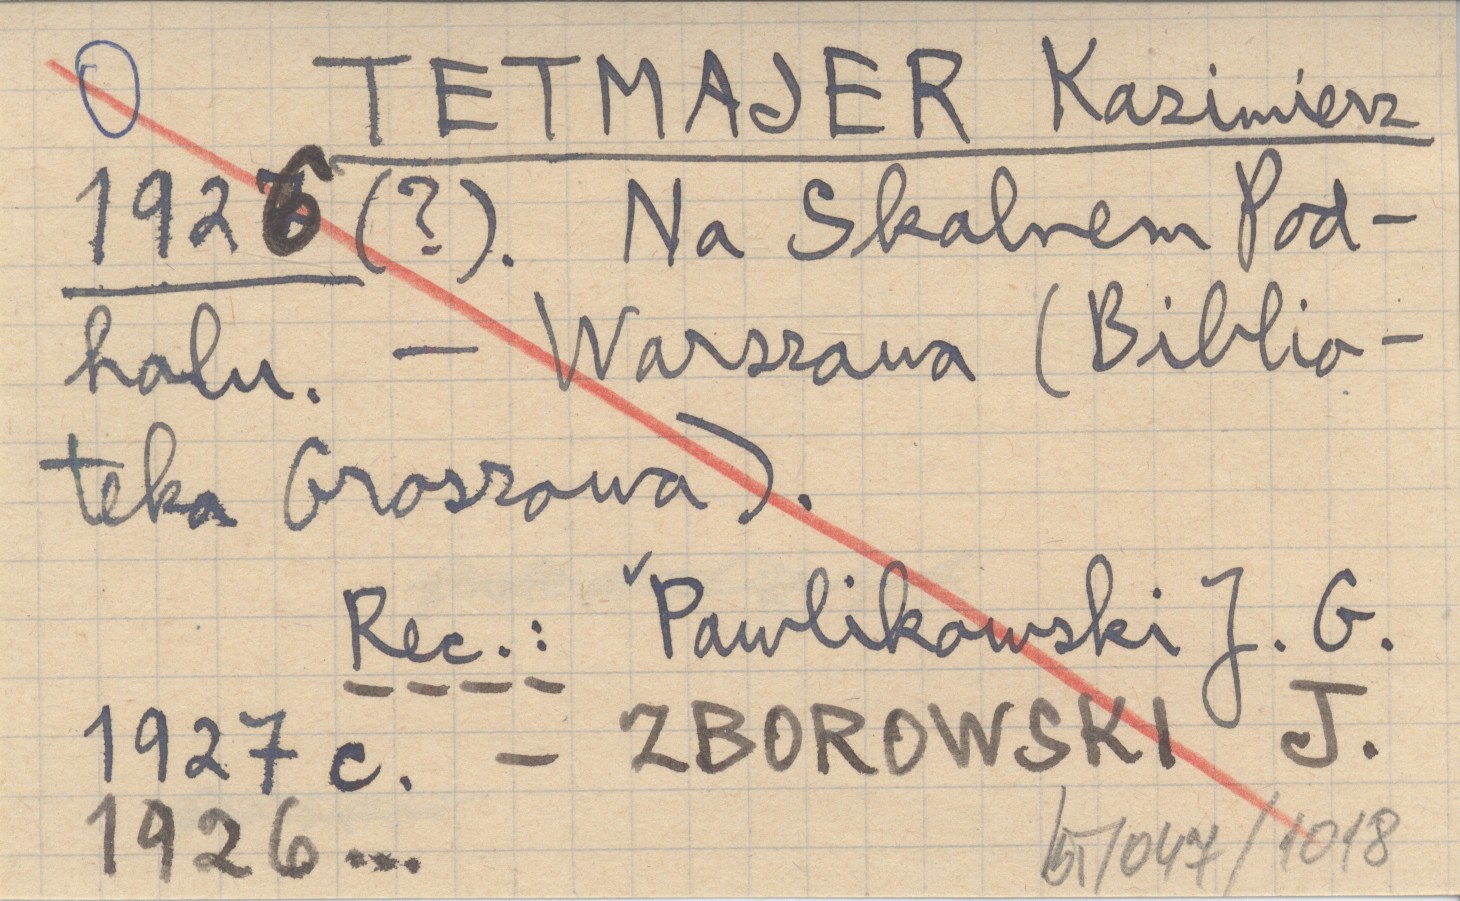 O TETMAJER Kazimierz
1926 (?). Na Skalnem Pod-
halu. — Warszawa (Biblio-
teka Groszowa).
Rec.: ✓Pawlikowski J. G.
1927 c. – ZBOROWSKI J.
1926...
/047/1018